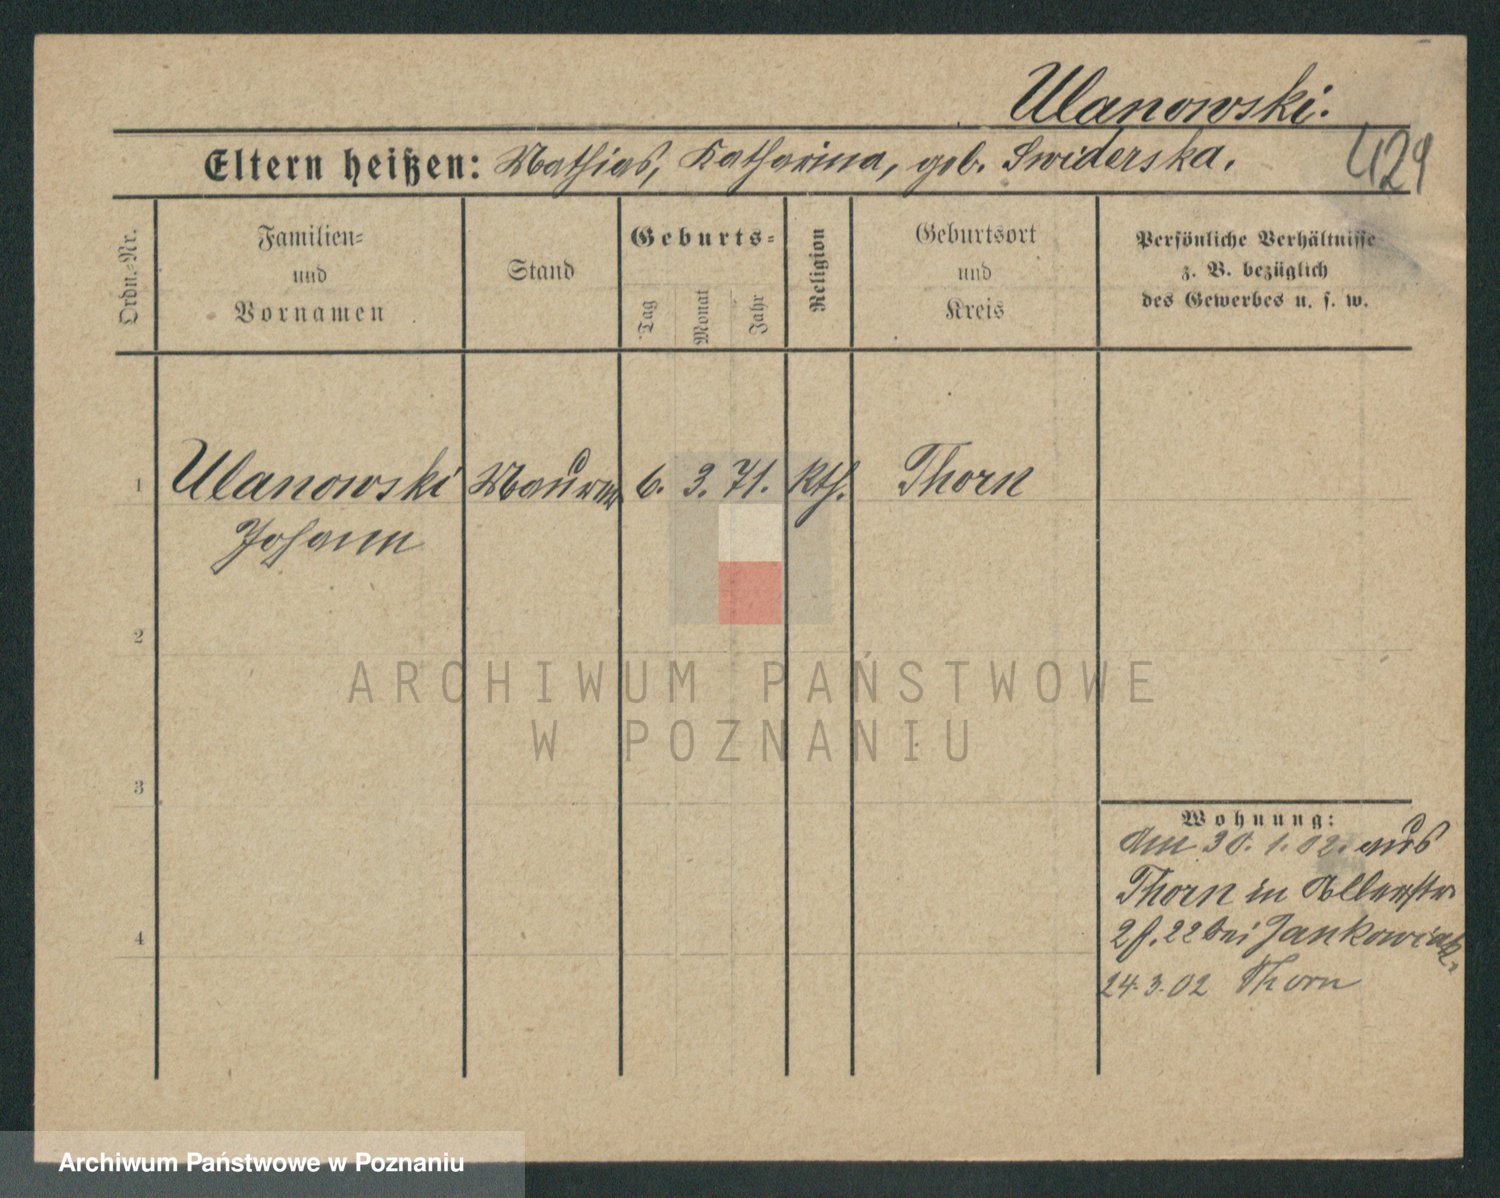 Ulanowski.
Eltern heißen: Mathias, Katharina, geb. Swiderska.
429
Ordn.-Nr.
Familien-
und
Vornamen
Stand
Geburts-
Tag
Monat
Jahr
Religion
Geburtsort
und
Kreis
Persönliche Verhältnisse
z. B. bezüglich
des Gewerbes u. s. w.
1 Ulanowski Maurer 6. 3. 71. kth. Thorn
Johann
2
3
4
Wohnung:
Am 30.1.02. aus
Thorn in
22 bei Jankowiak.
24.3.02 Thorn
ARCHIWUM PAŃSTWOWE
W POZNANIU
Archiwum Państwowe w Poznaniu